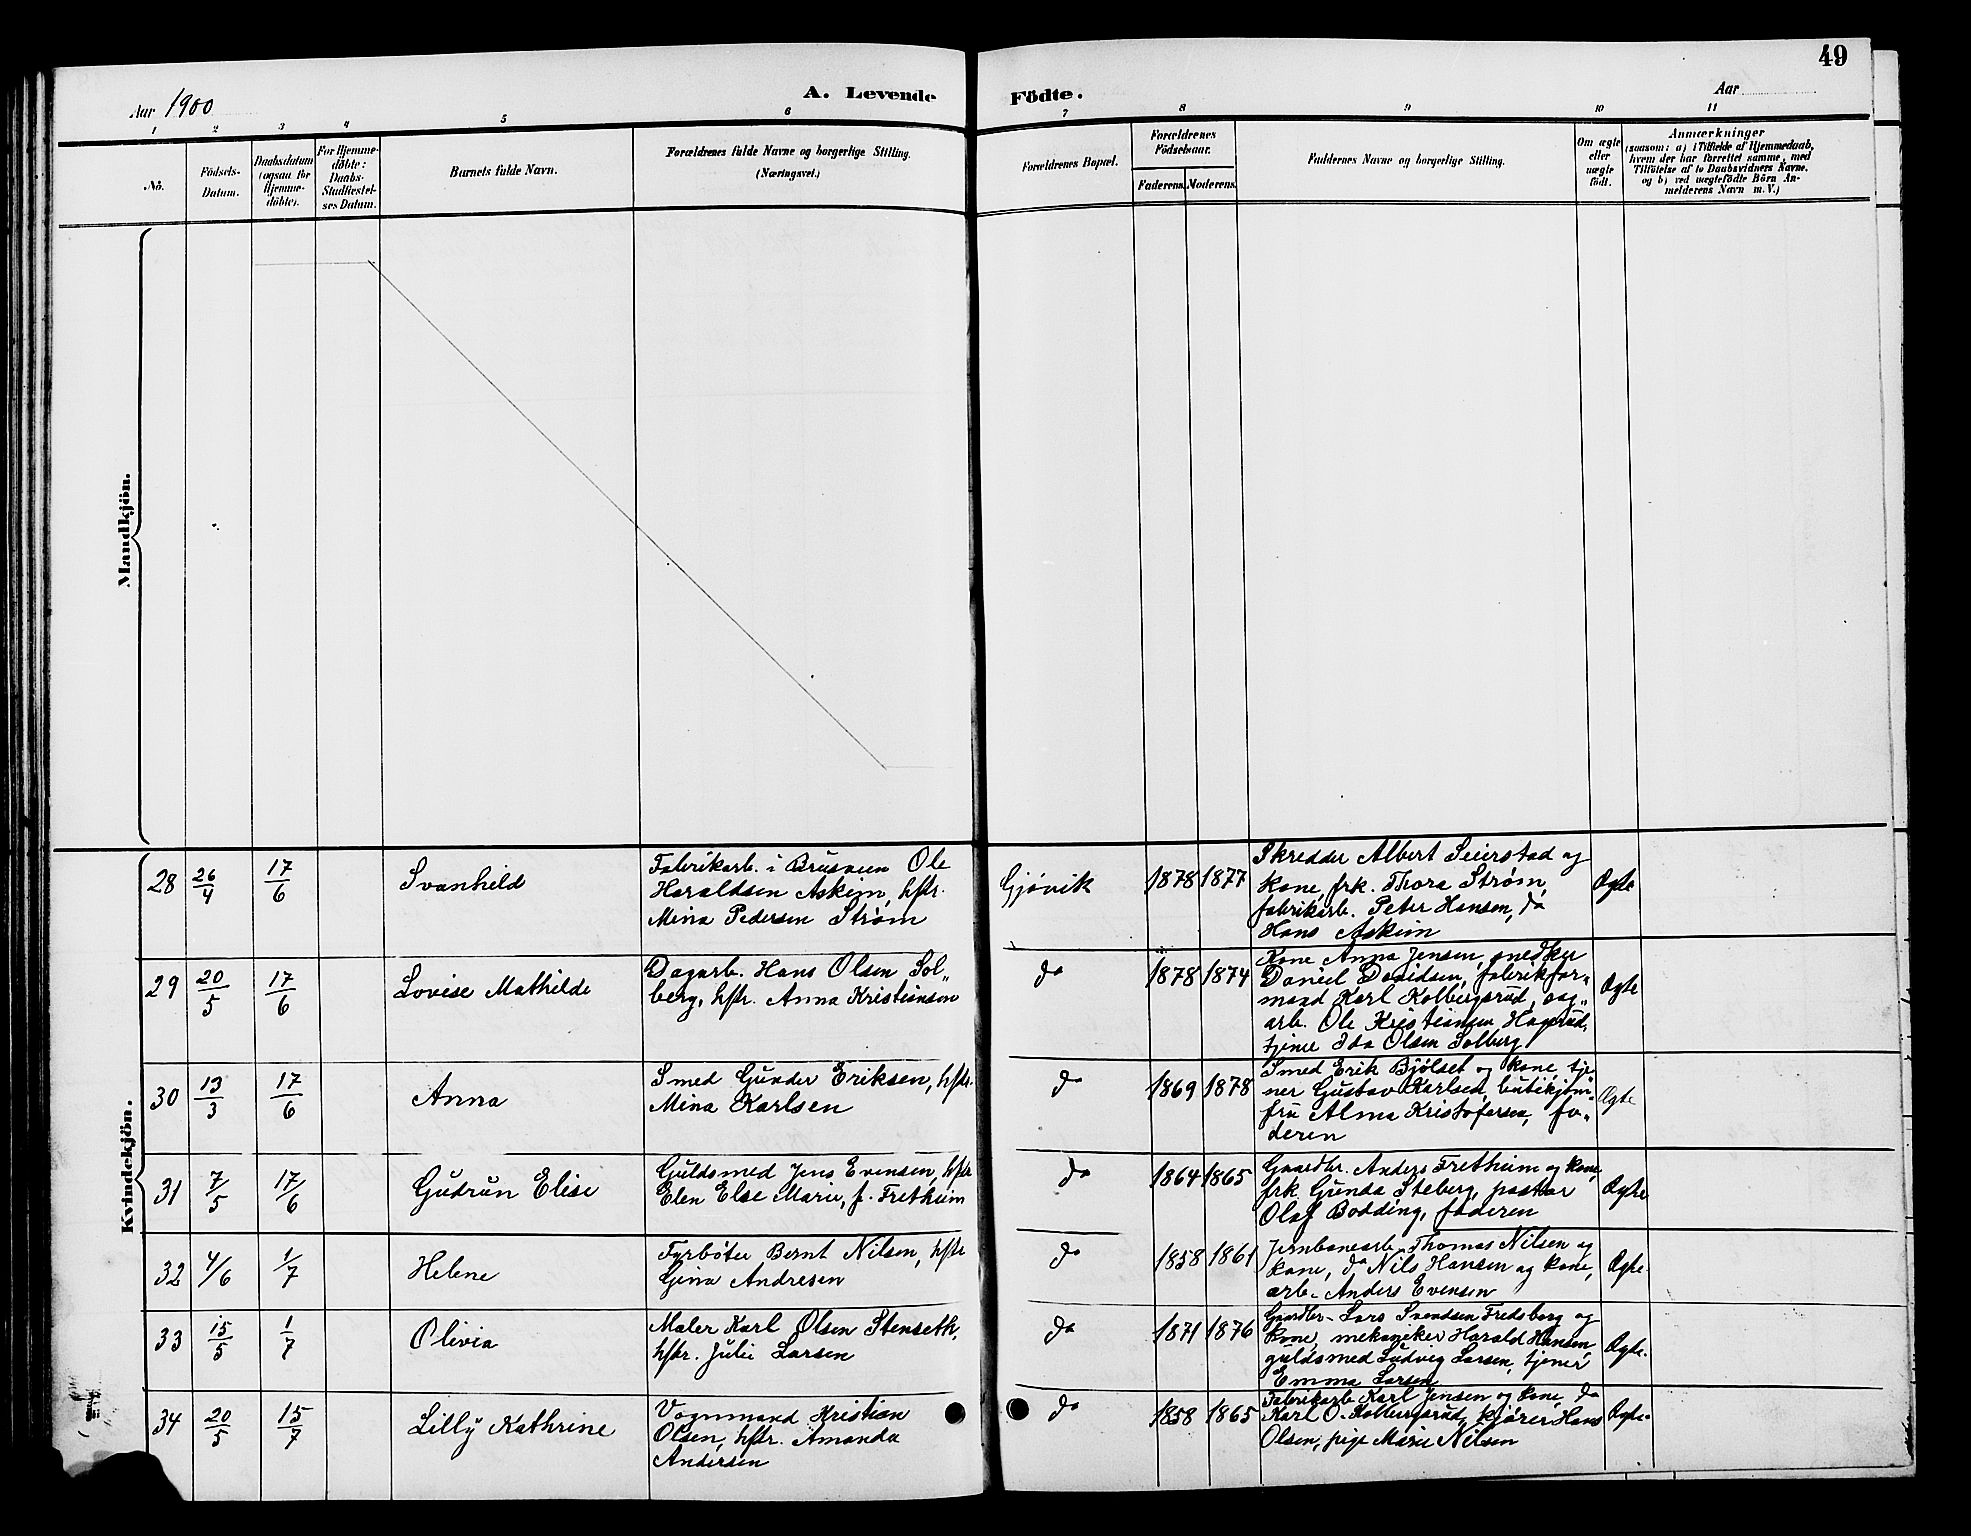 49
Aar 1900
A. Levende Födte.
Aar
1 2 3 4 5 6 7 8 9 10 11
No.
Födsels-
Datum.
Daabsdatum
(ogsaa for
Hjemme-
döbte).
For Hjemme-
döbte:
Daabs-
Stadfæstel-
ses Datum.
Barnets fulde Navn.
Forældrenes fulde Navne og borgerlige Stilling.
(Næringsvei.)
Forældrenes Bopæl.
Forældrenes
Födselsaar.
Faderens. Moderens.
Faddernes Navne og borgerlige Stilling.
Om ægte
eller
uægte
födt.
Anmærkninger
(saasom: a) i Tilfælde af Hjemmedaab,
hvem der har forrettet samme, med
Tilföielse af to Daabsvidners Navne,
og b) ved uægtefödte Börn An-
melderens Navn m. V.)
Mandkjön.
Kvindekjön.
28 26/4 17/6 Svanhild
Fabrikarb. i Brusveen Ole
Haraldsen Askim, hstr.
Mina Pedersen Strøm
Gjøvik 1878 1877
Skredder Albert Seierstad og
kone, frk. Thora Strøm,
fabrikarb. Peter Hansen, do
Hans Askim
Ægte
29 20/5 17/6 Lovise Mathilde
Dagarb. Hans Olsen Sol-
berg, hstr. Anna Kristiansen
do 1878 1874
Kone Anna Jensen, snedker
Daniel Davidsen, fabrikfor-
mand Karl Kolbergsrud, sag-
arb. Ole Kristiansen Hagerud,
tjener Ida Olsen Solberg
Ægte
30 13/3 17/6 Anna
Smed Gunder Eriksen, hstr.
Mina Karlsen
do 1869 1878
Smed Erik Bjølset og kone, tje-
ner Gustav Karlsen, butikjom-
fru Alma Kristofersen, fa-
deren
Ægte
31 7/5 17/6 Gudrun Elise
Guldsmed Jens Evensen, hstr
Elen Else Marie, f. Fretheim
do 1864 1865
Gaardbr. Anders Fretheim og kone,
frk. Gunda Steberg, pastor
Olaf Bodding, faderen
Ægte
32 4/6 1/7 Helene
Fyrbøter Bernt Nilsen, hstr
Gina Andresen
do 1858 1861
Jernbanearb. Thomas Nilsen og
kone, do Nils Hansen og kone,
arb. Anders Evensen
Ægte.
33 15/5 1/7 Olivia
Maler Karl Olsen Stenseth,
hstr. Julie Larsen
do 1871 1876
Gaardbr. Lars Svendsen Fredsberg og
kone, mekaniker Harald Hansen,
guldsmed Ludvig Larsen, tjener
Emma Larsen
Ægte.
34 20/5 15/7 Lilly Kathrine
Vognmand Kristian
Olsen, hstr. Amanda
Andersen
do 1858 1865
Fabrikarb. Karl Jensen og kone, do
Karl O. Kolbergsrud, kjører Hans
Olsen, pige Marie Nilsen
Ægte.